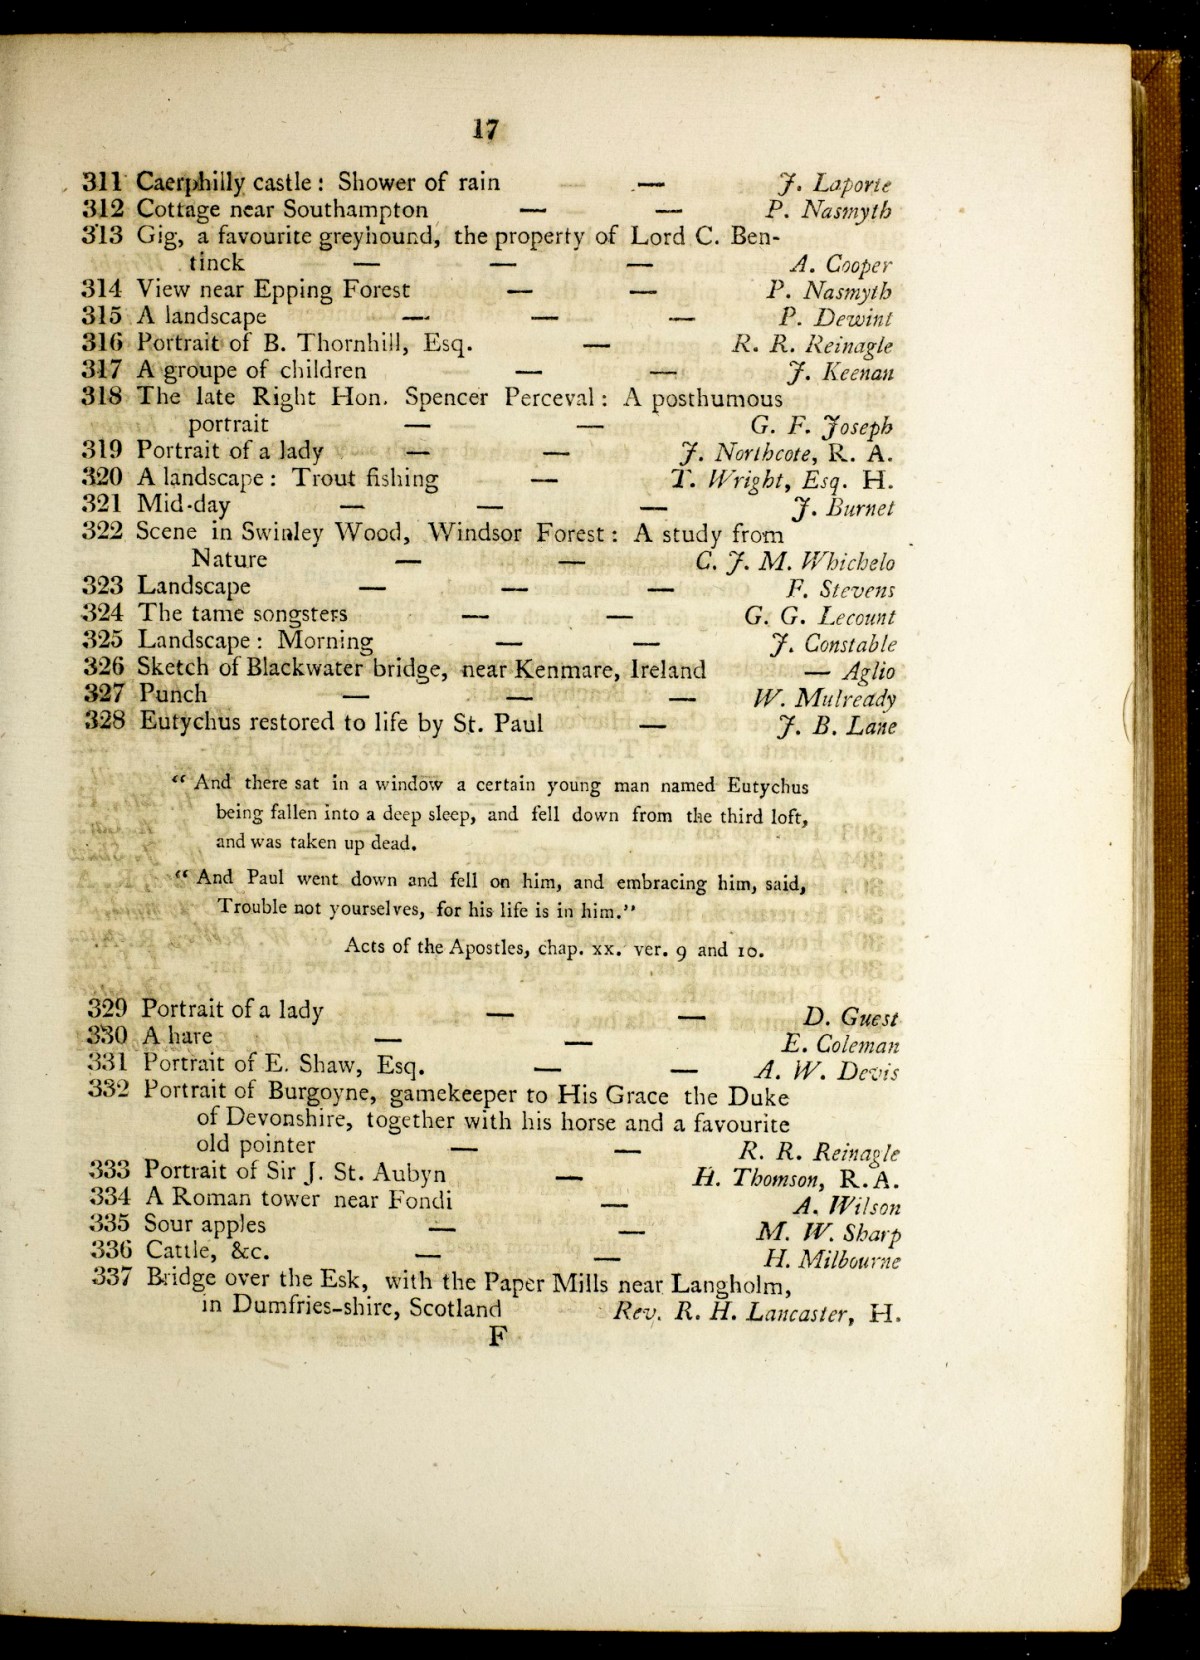 17
311 Caerphilly castle : Shower of rain — J. Laporte
312 Cottage near Southampton — — P. Nasmyth
313 Gig, a favourite greyhound, the property of Lord C. Ben-
tinck — — — A. Cooper
314 View near Epping Forest — — P. Nasmyth
315 A landscape — — — P. Dewint
316 Portrait of B. Thornhill, Esq. — R. R. Reinagle
317 A groupe of children — — J. Keenan
318 The late Right Hon. Spencer Perceval : A posthumous
portrait — — G. F. Joseph
319 Portrait of a lady — — J. Northcote, R. A.
320 A landscape : Trout fishing — T. Wright, Esq. H.
321 Mid-day — — — J. Burnet
322 Scene in Swinley Wood, Windsor Forest : A study from
Nature — — C. J. M. Whichelo
323 Landscape — — — F. Stevens
324 The tame songsters — — G. G. Lecount
325 Landscape : Morning — — J. Constable
326 Sketch of Blackwater bridge, near Kenmare, Ireland — Aglio
327 Punch — — — W. Mulready
328 Eutychus restored to life by St. Paul — J. B. Lane
“ And there sat in a window a certain young man named Eutychus
being fallen into a deep sleep, and fell down from the third loft,
and was taken up dead.
“ And Paul went down and fell on him, and embracing him, said,
Trouble not yourselves, for his life is in him.”
Acts of the Apostles, chap. xx. ver. 9 and 10.
329 Portrait of a lady — — D. Guest
330 A hare — — E. Coleman
331 Portrait of E. Shaw, Esq. — — A. W. Devis
332 Portrait of Burgoyne, gamekeeper to His Grace the Duke
of Devonshire, together with his horse and a favourite
old pointer — — R. R. Reinagle
333 Portrait of Sir J. St. Aubyn — H. Thomson, R. A.
334 A Roman tower near Fondi — A. Wilson
335 Sour apples — — M. W. Sharp
336 Cattle, &c. — — H. Milbourne
337 Bridge over the Esk, with the Paper Mills near Langholm,
in Dumfries-shire, Scotland Rev. R. H. Lancaster, H.
F